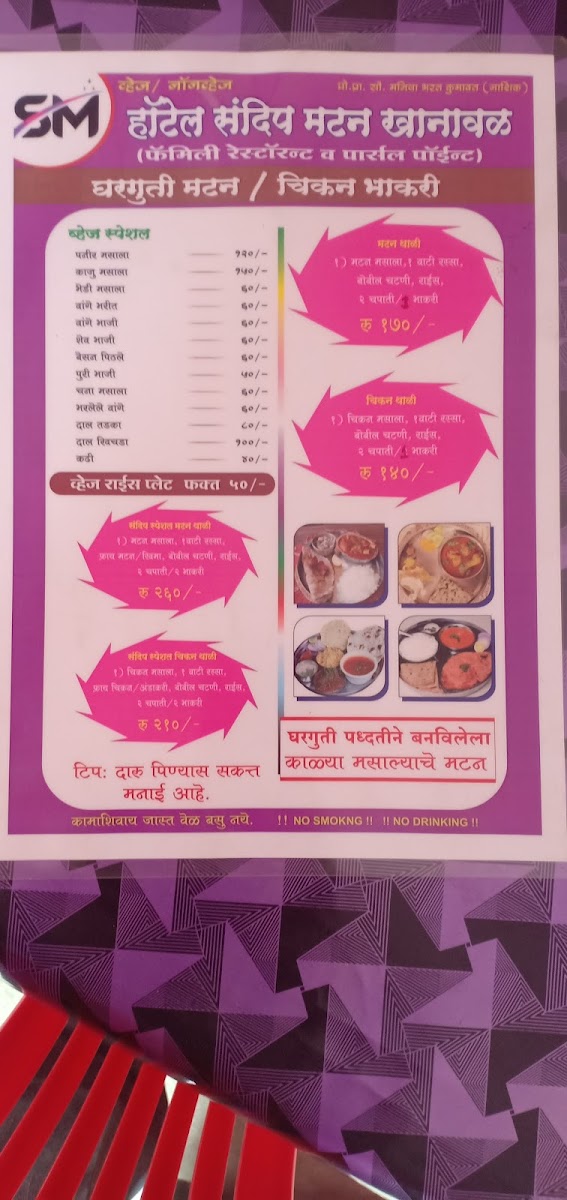 SM
व्हेज/ नॉनव्हेज
प्रो.प्रा. सौ. मनिषा भरत कुमावत (नाशिक)
हॉटेल संदिप मटन खानावळ
(फॅमिली रेस्टॉरन्ट व पार्सल पॉईन्ट)
घरगुती मटन / चिकन भाकरी
व्हेज स्पेशल
पनीर मसाला १२०/-
काजु मसाला १५०/-
मेथी मसाला ६०/-
वांगे भरीत ६०/-
वांगे भाजी ६०/-
शेव भाजी ६०/-
बेसन पिठले ६०/-
पुरी भाजी ५०/-
चना मसाला ६०/-
भरलेले वांगे ६०/-
दाल तडका ८०/-
दाल खिचडा १००/-
कढी ४०/-
व्हेज राईस प्लेट फक्त ५०/-
संदिप स्पेशल मटन थाळी
१) मटन मसाला, १वाटी रस्सा,
फ्राय मटन/खिमा, बोंबील चटणी, राईस,
२ चपाती/२ भाकरी
रु २६०/-
संदिप स्पेशल चिकन थाळी
१) चिकन मसाला, १ वाटी रस्सा,
फ्राय चिकन/अंडाकरी, बोंबील चटणी, राईस,
२ चपाती/२ भाकरी
रु २१०/-
टिप: दारु पिण्यास सक्त
मनाई आहे.
मटन थाळी
१) मटन मसाला,१ वाटी रस्सा,
बोंबील चटणी, राईस,
२ चपाती/ भाकरी
रु १७०/-
चिकन थाळी
१) चिकन मसाला, १वाटी रस्सा,
बोंबील चटणी, राईस,
२ चपाती/ भाकरी
रु १४०/-
घरगुती पध्दतीने बनविलेला
काळ्या मसाल्याचे मटन
कामाशिवाय जास्त वेळ बसु नये. !! NO SMOKNG !! !! NO DRINKING !!